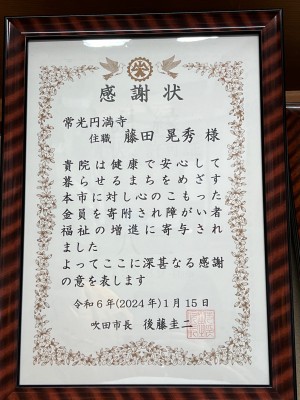 感謝状
常光円満寺
住職 藤田晃秀様
貴院は健康で安心して
暮らせるまちをめざす
本市に対し心のこもった
金員を寄附され障がい者
福祉の増進に寄与され
ました
よってここに深甚なる感謝
の意を表します
令和6年(2024年)1月15日
吹田市長 後藤圭二